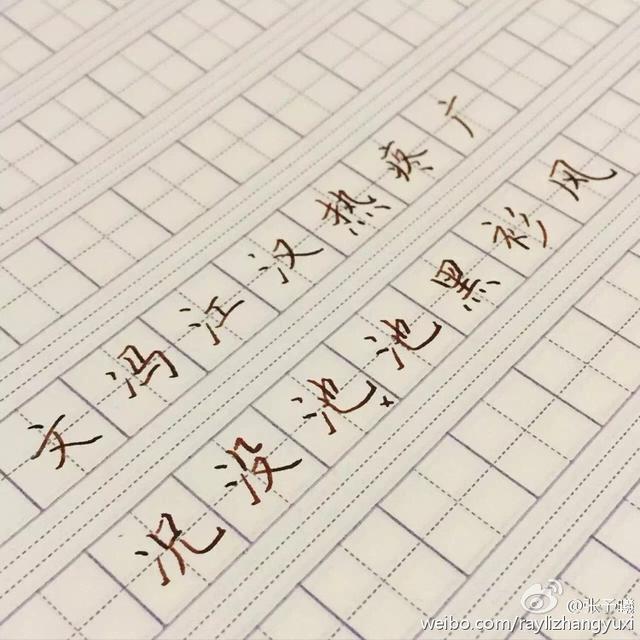 文冯江汉热疼广
况没池池黑衫风
@张予曦
weibo.com/raylizhangyuxi